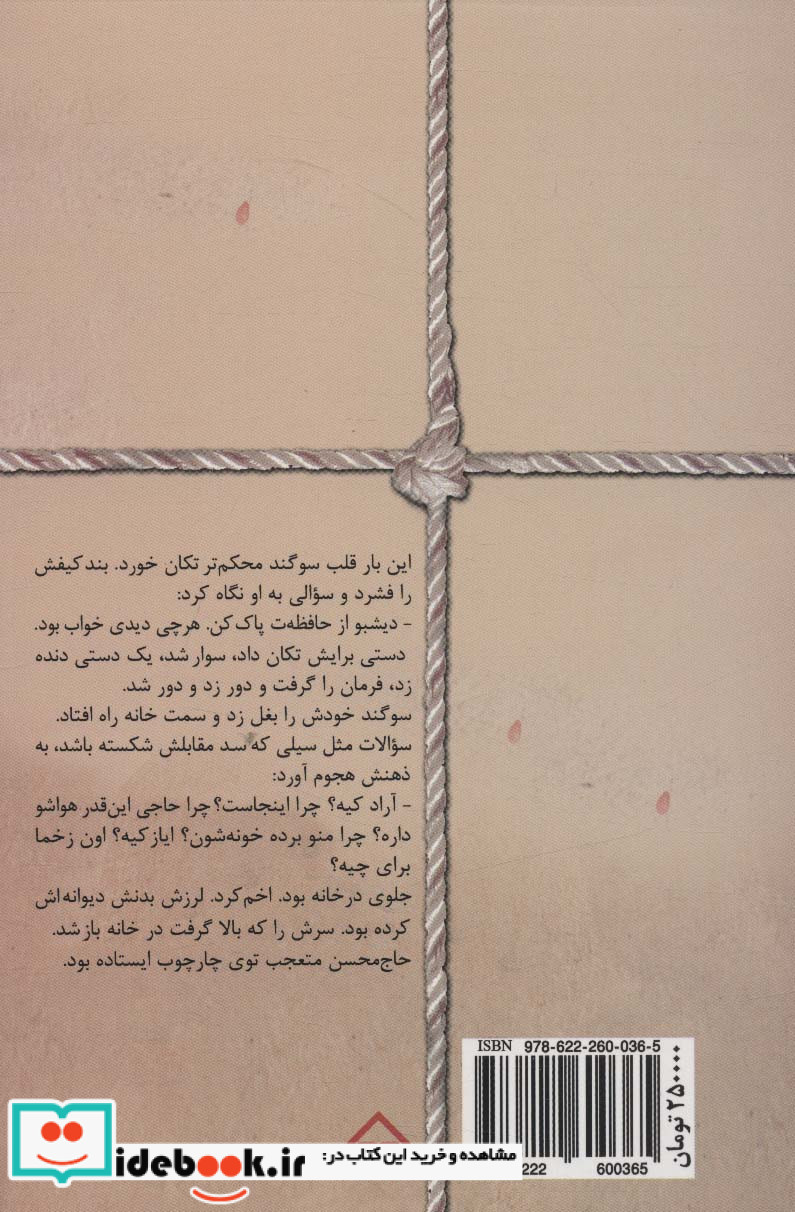 این بار قلب سوگند محکم‌تر تکان خورد. بند کیفش
را فشرد و سؤالی به او نگاه کرد:
- دیشبو از حافظه‌ت پاک کن. هرچی دیدی خواب بود.
دستی برایش تکان داد، سوار شد، یک دستی دنده
زد، فرمان را گرفت و دور زد و دور شد.
سوگند خودش را بغل زد و سمت خانه راه افتاد.
سؤالات مثل سیلی که سد مقابلش شکسته باشد، به
ذهنش هجوم آورد:
- آراد کیه؟ چرا اینجاست؟ چرا حاجی این‌قدر هواشو
داره؟ چرا منو برده خونه‌شون؟ ایاز کیه؟ اون زخما
برای چیه؟
جلوی در خانه بود. اخم کرد. لرزش بدنش دیوانه‌اش
کرده بود. سرش را که بالا گرفت در خانه باز شد.
حاج‌محسن متعجب توی چارچوب ایستاده بود.
ISBN 978-622-260-036-5
۲۵۰۰۰۰ تومان
222 600365
مشاهده و خرید این کتاب در:
idebook.ir